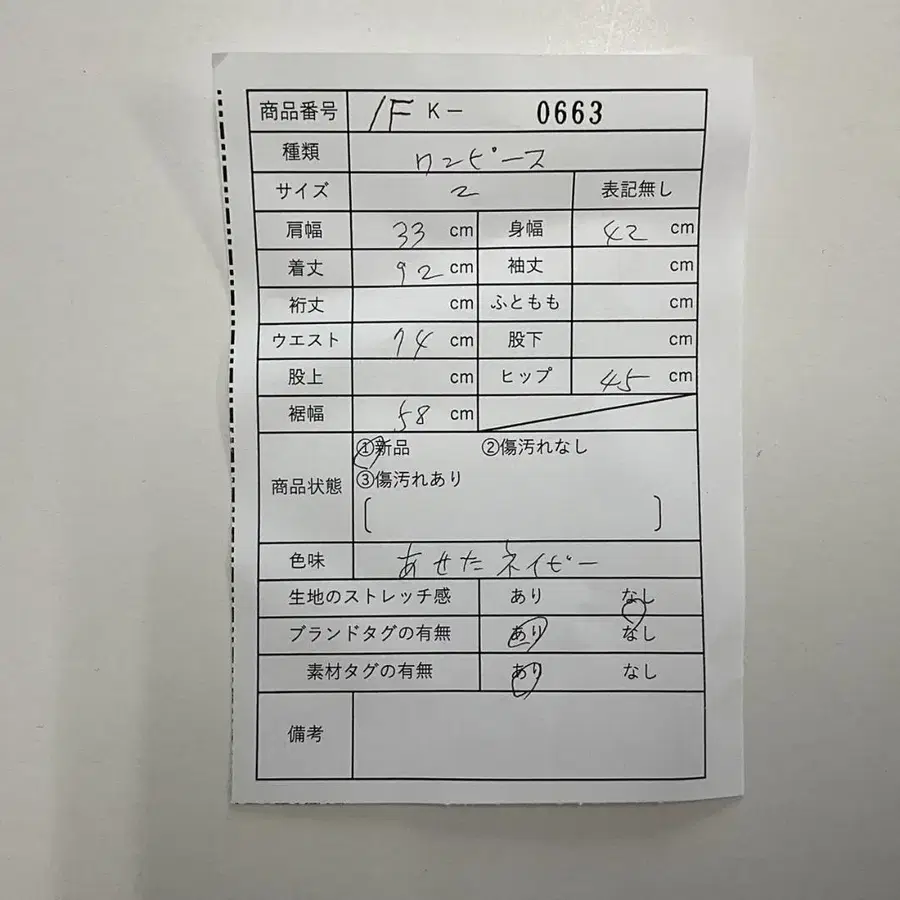 商品番号 1F K- 0663
種類 ワンピース
サイズ 2 表記無し
肩幅 33 cm 身幅 42 cm
着丈 92 cm 袖丈 cm
裄丈 cm ふともも cm
ウエスト 74 cm 股下 cm
股上 cm ヒップ 45 cm
裾幅 58 cm
商品状態 ①新品 ②傷汚れなし
③傷汚れあり
[ ]
色味 あせたネイビー
生地のストレッチ感 あり なし
ブランドタグの有無 あり なし
素材タグの有無 あり なし
備考